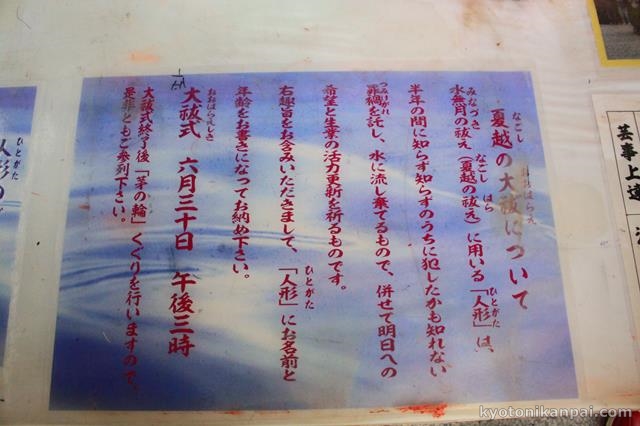 夏越の大祓について
なごし
おおはらえ
水無月の祓え(夏越の祓え)に用いる「人形」は、
みなづき
なごし
はら
ひとがた
半年の間に知らず知らずのうちに犯したかも知れない
罪禍を託し、水に流し棄てるもので、併せて明日への
つみけがれ
希望と生業の活力更新を祈るものです。
右趣旨をお含みいただきまして、「人形」にお名前と
ひとがた
年齢をお書きになってお納め下さい。
大祓式 六月三十日 午後三時
おおはらしき
大祓式終了後「茅の輪」くぐりを行いますので、
是非ともご参列下さい。
人形の
ひとがた
芸事上達
kyotonikanpai.com